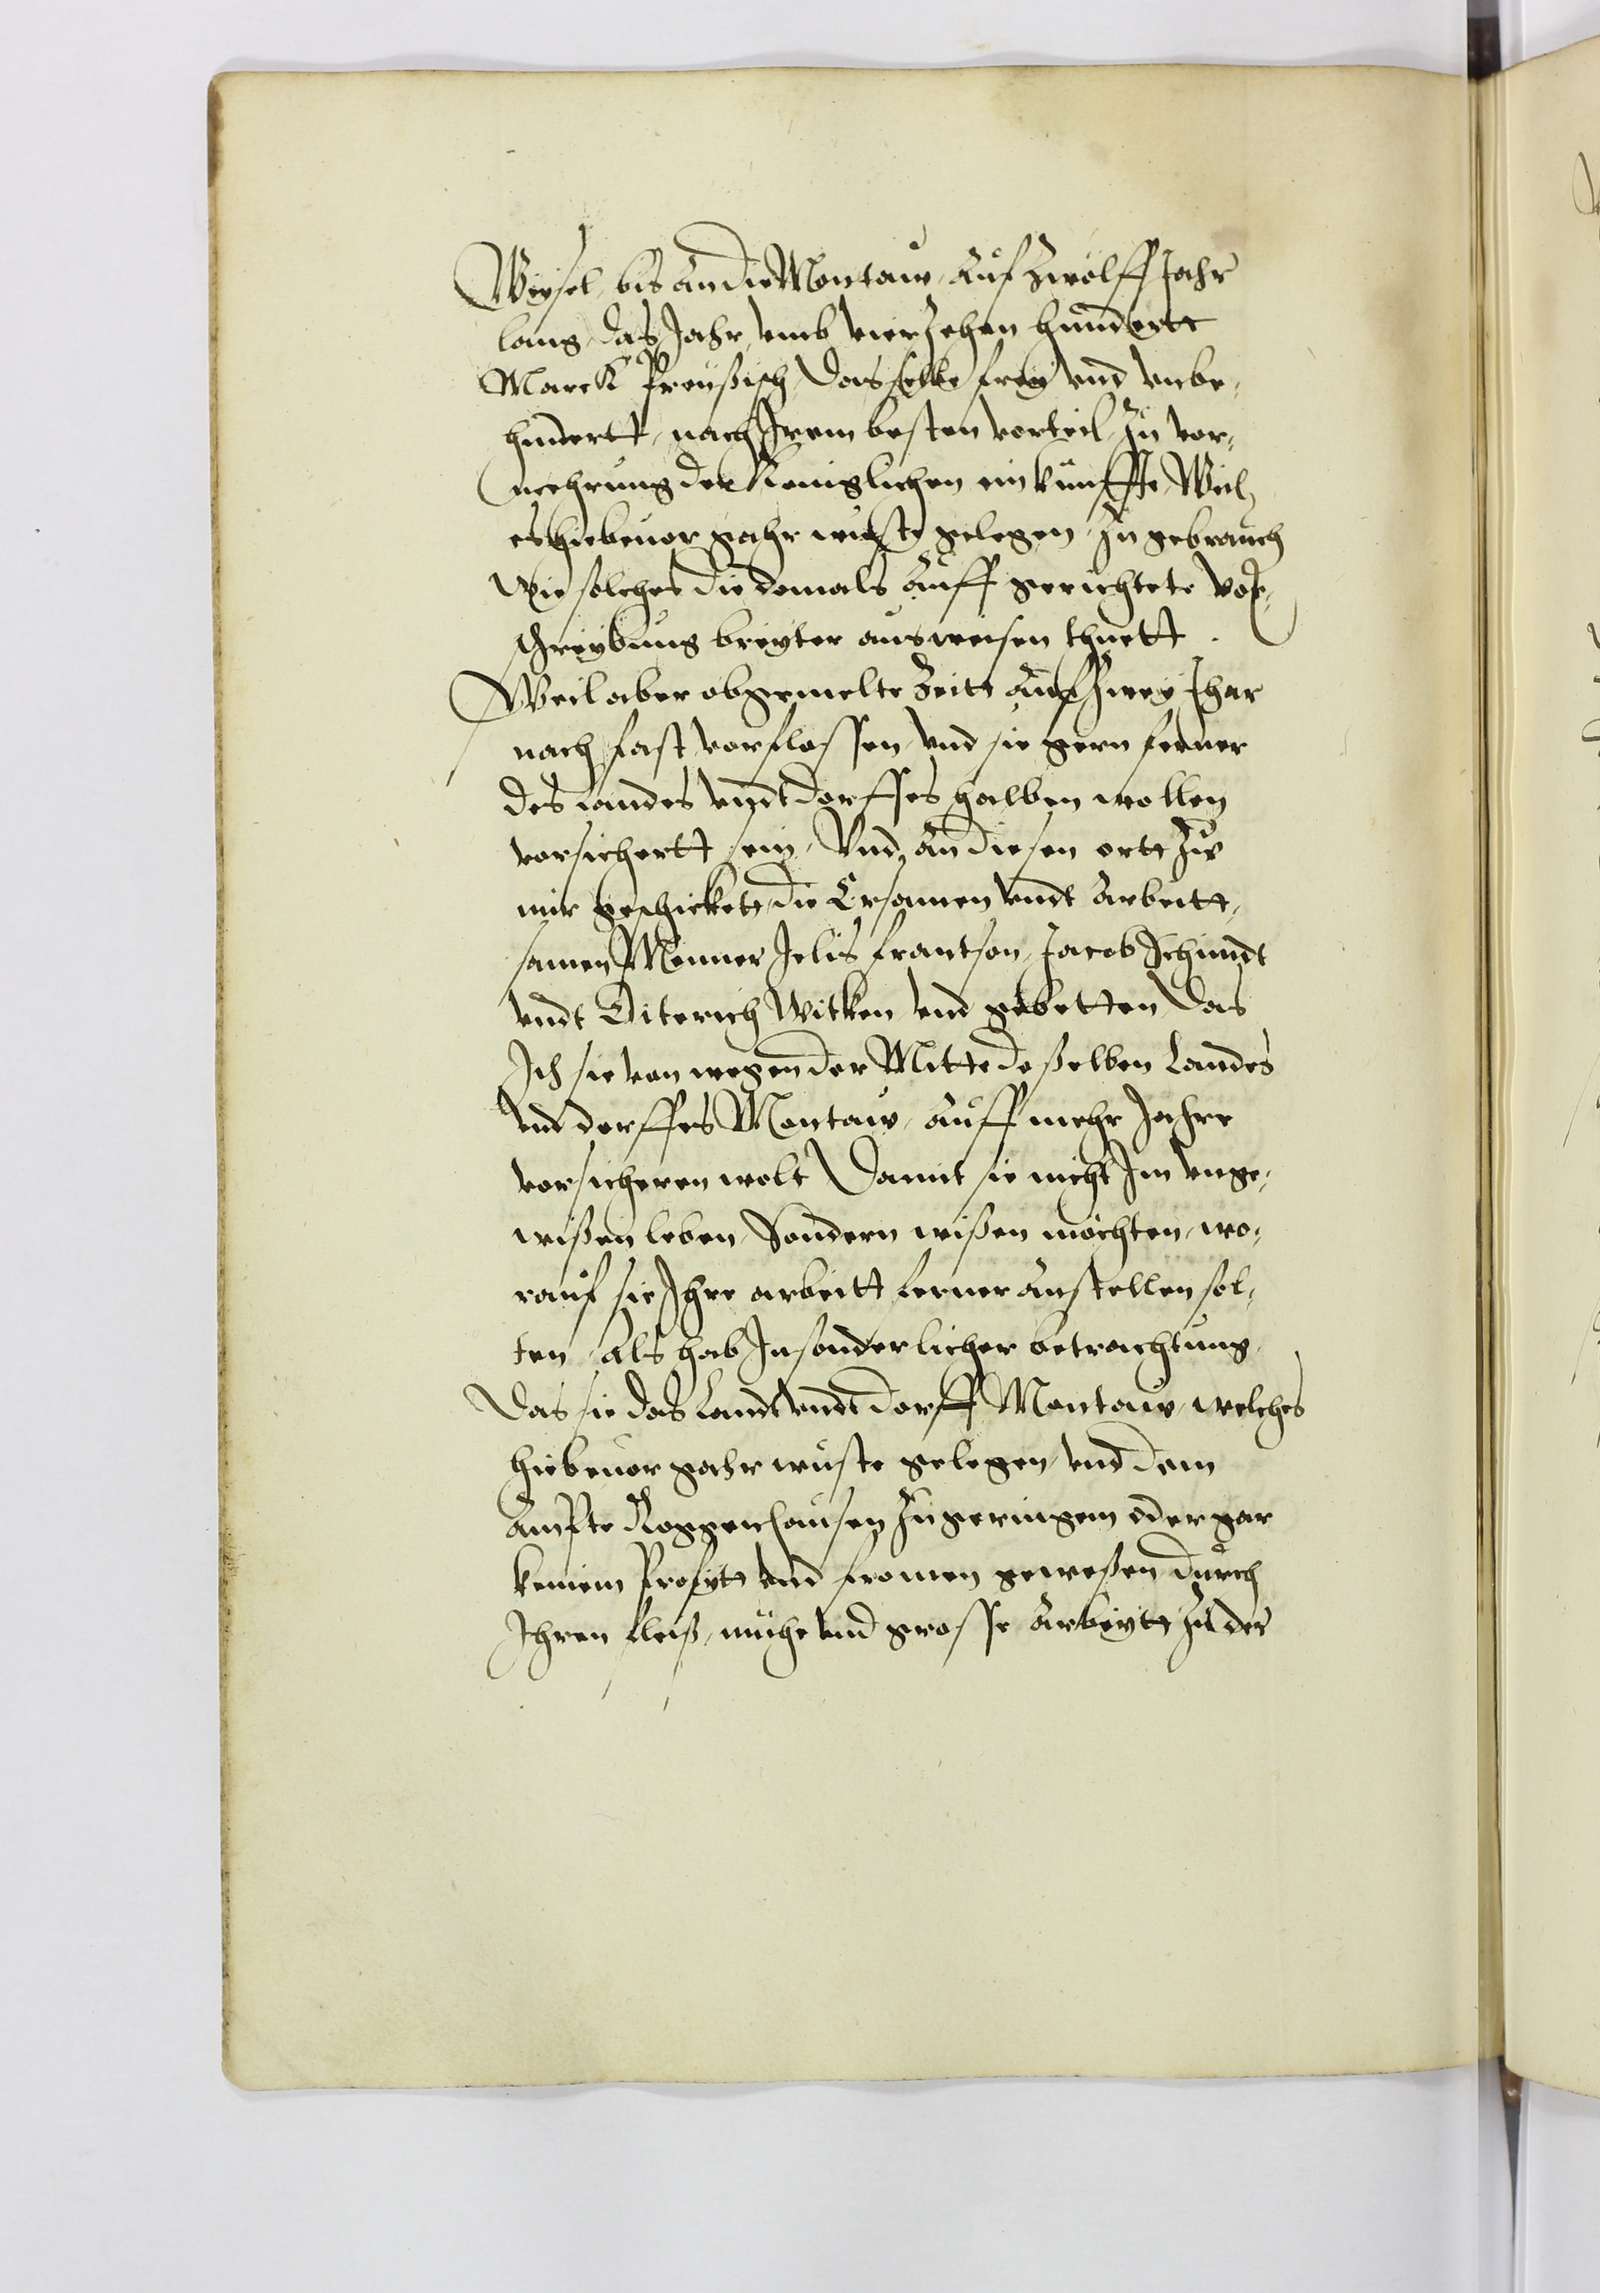 Weysel, bis an die Montaw, auf zwölff Jahr
lang, das Jahr umb vierzehen hundertt
Marck Preußisch, dasselbe frey und unbe-
hindertt, nach Irem besten vorteil, zu vor-
mehrung der Königlichen einkunffte, Weil
es hiebevor gahr wuste gelegen, zu gebrauch
wie solches die domals auff gerichtete vor-
schreybung breyter ausweisen thuett.
Weil aber obgemelte Zeitt auf zwey Ihar
nach fast vorflossen, und sie gern ferner
des Landes undt dorffes halben wollen
vorsichertt sein, Und an diesen ortt zu
mir geschickett, die Ersamen undt Arbeitt-
samen Menner Jelis frantson, Jacob Schmidt
undt Diterich Witken und gebetten, das
Ich sie von wegen der Mitte deßelben Landes
und dorffes Montaw, auff mehr Jahre
vorsicheren wolt, Damit sie nicht Im unge-
wißen leben, Sondern wißen möchten, wo-
rauf sie Ihre arbeitt ferner anstellen sol-
ten, als hab In sonderlicher betrachtung,
Das sie das Landt undt dorff Montaw, welches
hiebevor gahr wuste gelegen, und dem
Ampte Roggenhausen zu geringem oder gar
keinem Profytt und fromen geweßen, durch
Ihren fleiß, mühe und grosse Arbeytt zu der